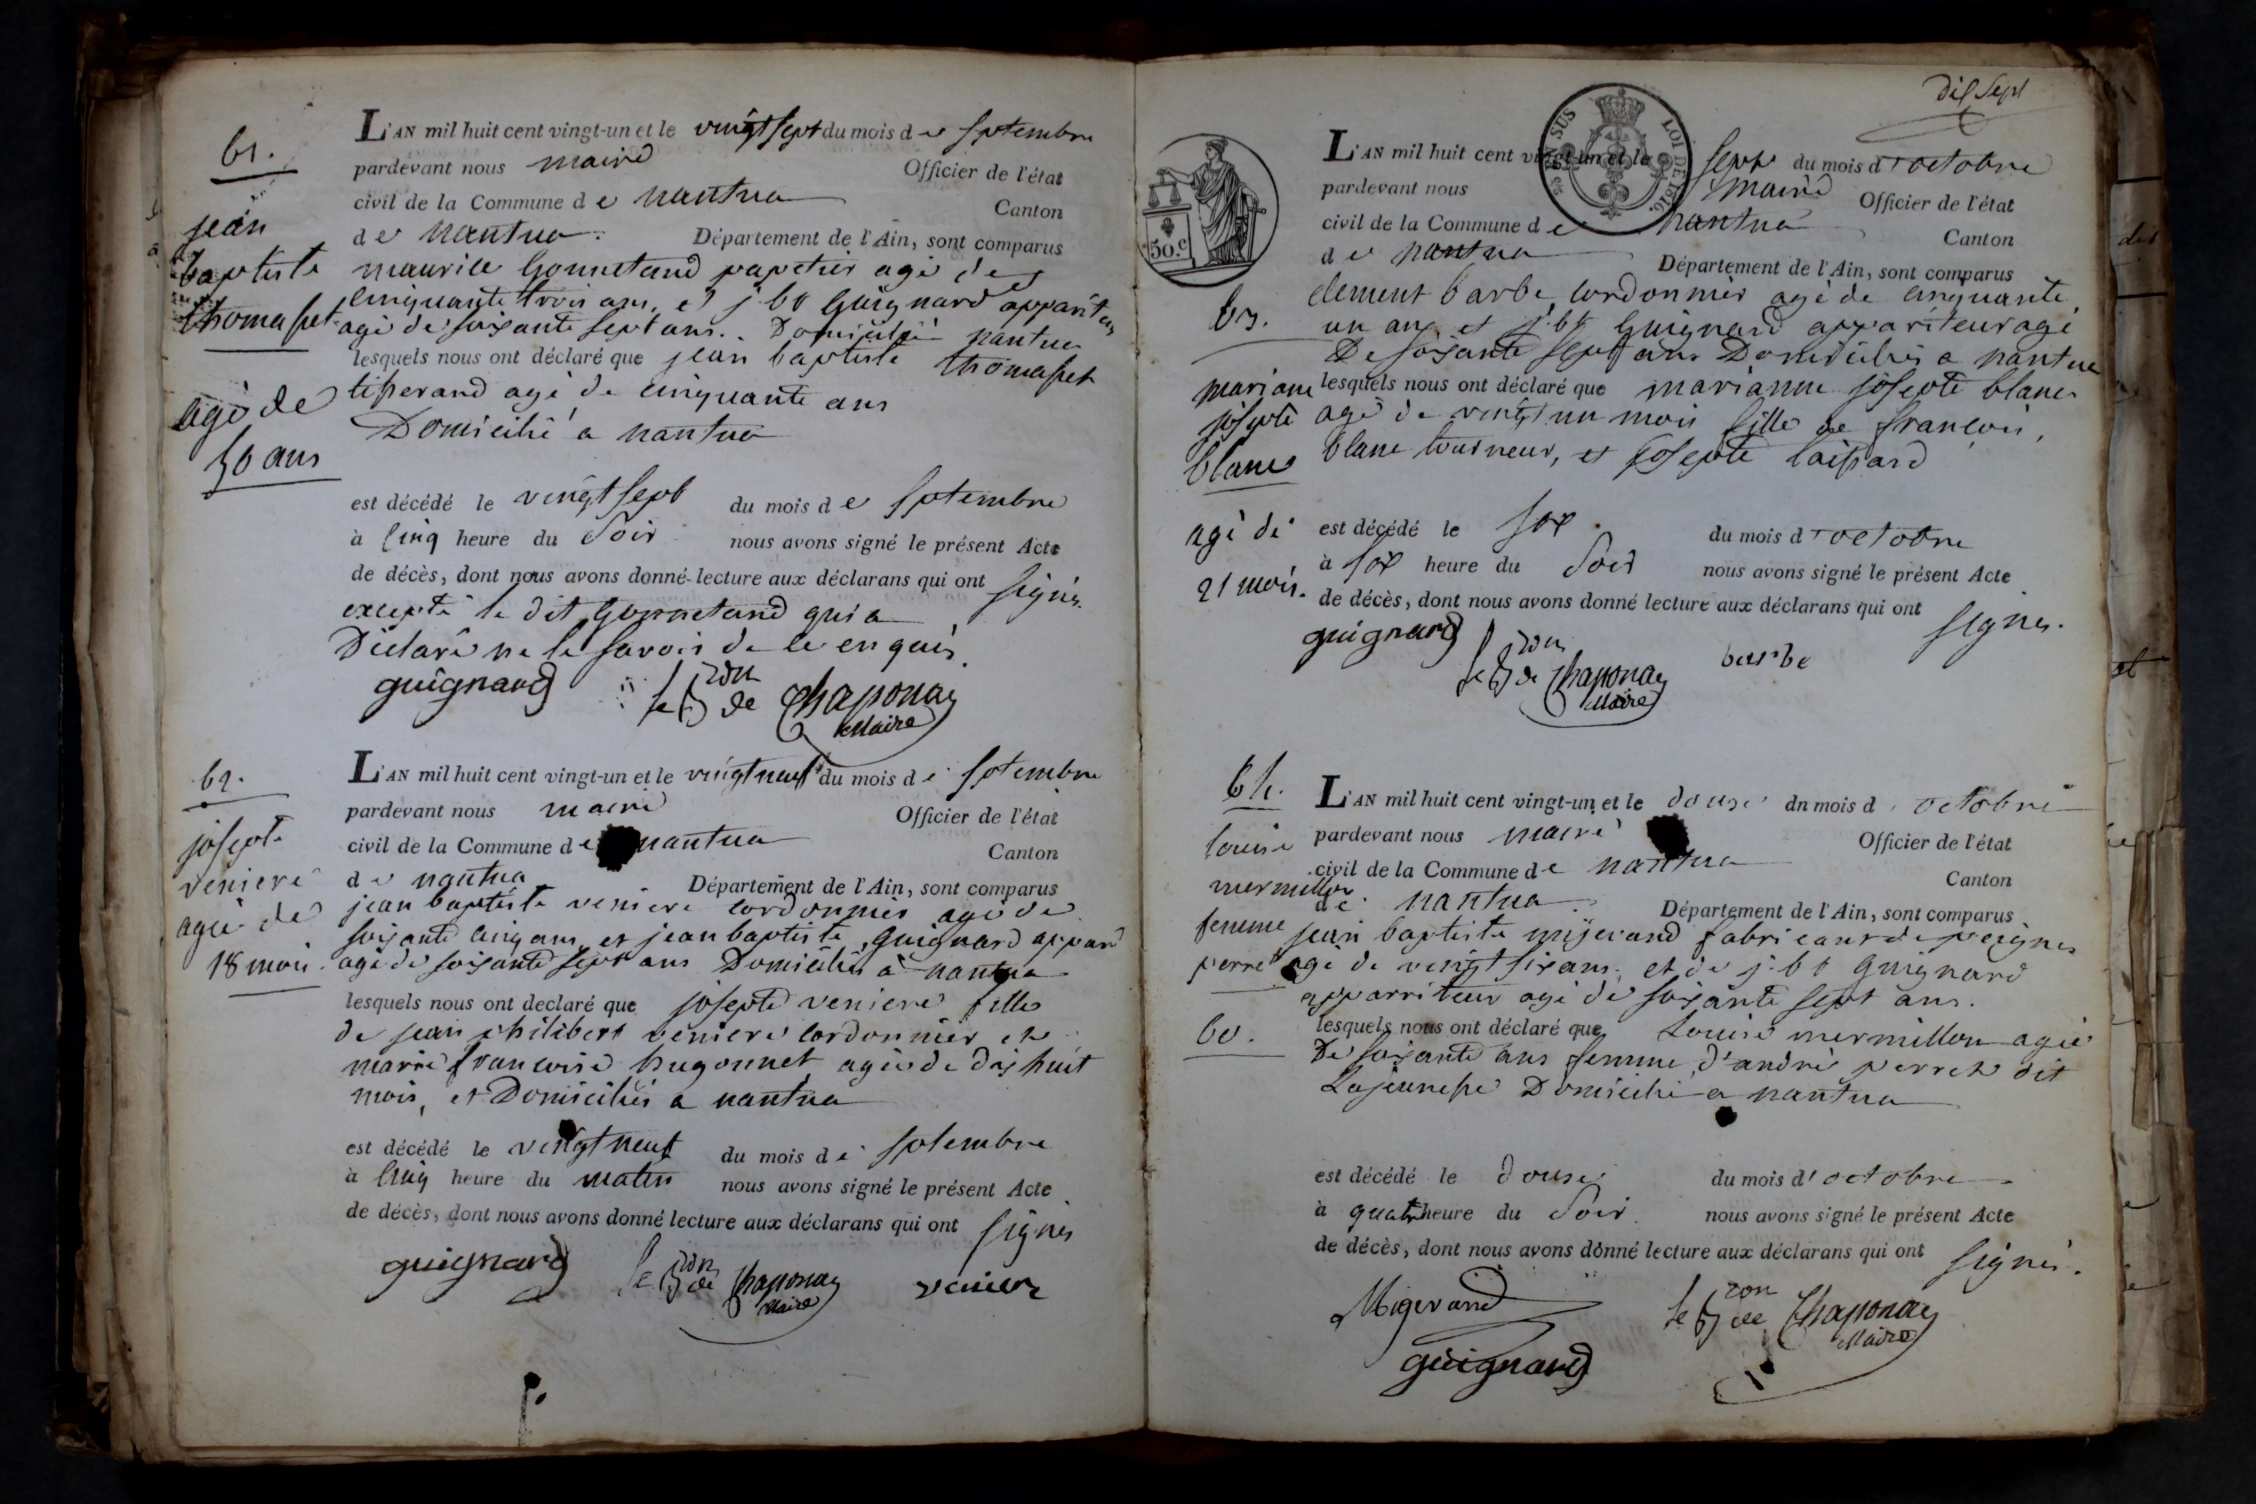 61.
jean
baptiste
thomasset
agé de
50 ans
L'AN mil huit cent vingt-un et le vingt sept du mois d e septembre
pardevant nous maire Officier de l'état
civil de la Commune d e nantua Canton
d e nantua. Département de l'Ain, sont comparus
maurice Gonnetand papetier agé de
cinquante trois ans, et j. bt Guignard appariteur
agé de soixante sept ans. Domiciliés nantua
lesquels nous ont déclaré que jean baptiste thomasset
tisserand agé de cinquante ans
Domicilié a nantua
est décédé le vingt sept du mois d e septembre
à cinq heure du Soir nous avons signé le présent Acte
de décès, dont nous avons donné lecture aux déclarans qui ont signés.
excepté le dit Gonnetand qui a
Déclaré ne le savoir de ce enquis.
guignard le Bron de Chaponay
Maire
62.
josepte
veniere
agée de
18 mois.
L'AN mil huit cent vingt-un et le vingt neuf du mois d e septembre
pardevant nous maire Officier de l'état
civil de la Commune d e nantua Canton
d e nantua Département de l'Ain, sont comparus
jean baptiste veniere cordonnier agé de
soixante cinq ans, et jean baptiste Guignard appari
agé de soixante sept ans Domiciliés a nantua
lesquels nous ont declaré que josepte veniere fille
de jean philibert veniere cordonnier et
marie francoise hugonnet agée de dix huit
mois, et Domiciliés a nantua
est décédé le vingt neuf du mois d e septembre
à cinq heure du matin nous avons signé le présent Acte
de décès, dont nous avons donné lecture aux déclarans qui ont signés
guignard le Bron de Chaponay venier
Maire
dix sept
EN SUS LOI DE 1816.
50.c
63.
mariane
josepte
blanc
agé de
21 mois.
L'AN mil huit cent vingt-un et le sept du mois d'octobre
pardevant nous maire Officier de l'état
civil de la Commune d e nantua Canton
d e nantua Département de l'Ain, sont comparus
clement barbe, cordonnier agé de cinquante
un ans, et j. bt Guignard appariteur agé
De soixante sept ans Domiciliés a nantua
lesquels nous ont déclaré que marianne josepte blanc
agé de vingt un mois fille de francois,
blanc tourneur, et josepte
est décédé le six du mois d'octobre
à six heure du Soir nous avons signé le présent Acte
de décès, dont nous avons donné lecture aux déclarans qui ont signés.
guignard le Bron de Chaponay barbe
Maire
64.
louise
mermillon
femme
perret
60.
L'AN mil huit cent vingt-un et le douse du mois d octobre
pardevant nous maire Officier de l'état
civil de la Commune d e nantua Canton
d e nantua. Département de l'Ain, sont comparus
jean baptiste mijerand fabricant de peignes
agé de vingt six ans, et de j. bt Guignard
apparriteur agé de soixante sept ans.
lesquels nous ont déclaré que Louise mermillon agée
De soixante ans femme d'andré perret dit
Lajeunesse Domicilié a nantua
est décédé le douse du mois d'octobre
à quatre heure du Soir. nous avons signé le présent Acte
de décès, dont nous avons donné lecture aux déclarans qui ont signés.
Migerand le Bron de Chaponay
Maire
guignard